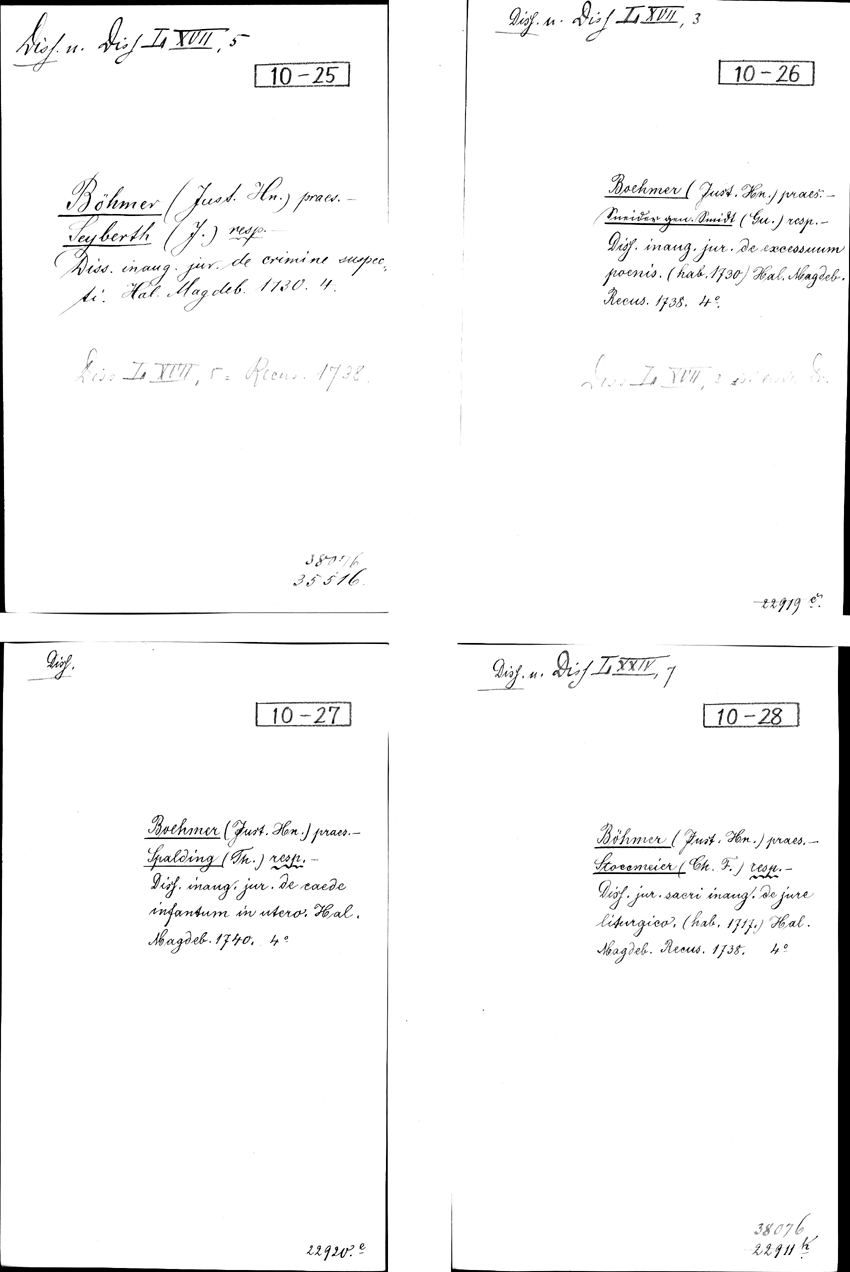 Diss. u. Diss L XVII, 5
10-25
Böhmer (Just. Hn.) praes. –
Seyberth (J.) resp. –
Diss. inaug. jur. de crimine suspec-
ti. Hal. Magdeb. 1730. 4.
Diss L XVII, 5 = Recus. 1738.
38076
35516.
Diss. u. Diss L XVII, 3
10-26
Boehmer (Just. Hn.) praes. –
Sneider gen. Smidt (Gu.) resp. –
Diss. inaug. jur. de excessuum
poenis. (hab. 1730) Hal. Magdeb.
Recus. 1738. 4°.
Diss L XVII, 3
22919 c.
Diss.
10-27
Boehmer (Just. Hn.) praes. –
Spalding (Th.) resp. –
Diss. inaug. jur. de caede
infantum in utero. Hal.
Magdeb. 1740. 4°
22920. e
Diss. u. Diss L XXIV, 7
10-28
Böhmer (Just. Hn.) praes. –
Stoecmeier (Ch. F.) resp. –
Diss. jur. sacri inaug. de jure
liturgico. (hab. 1717.) Hal.
Magdeb. Recus. 1738. 4°
38076
22911 k